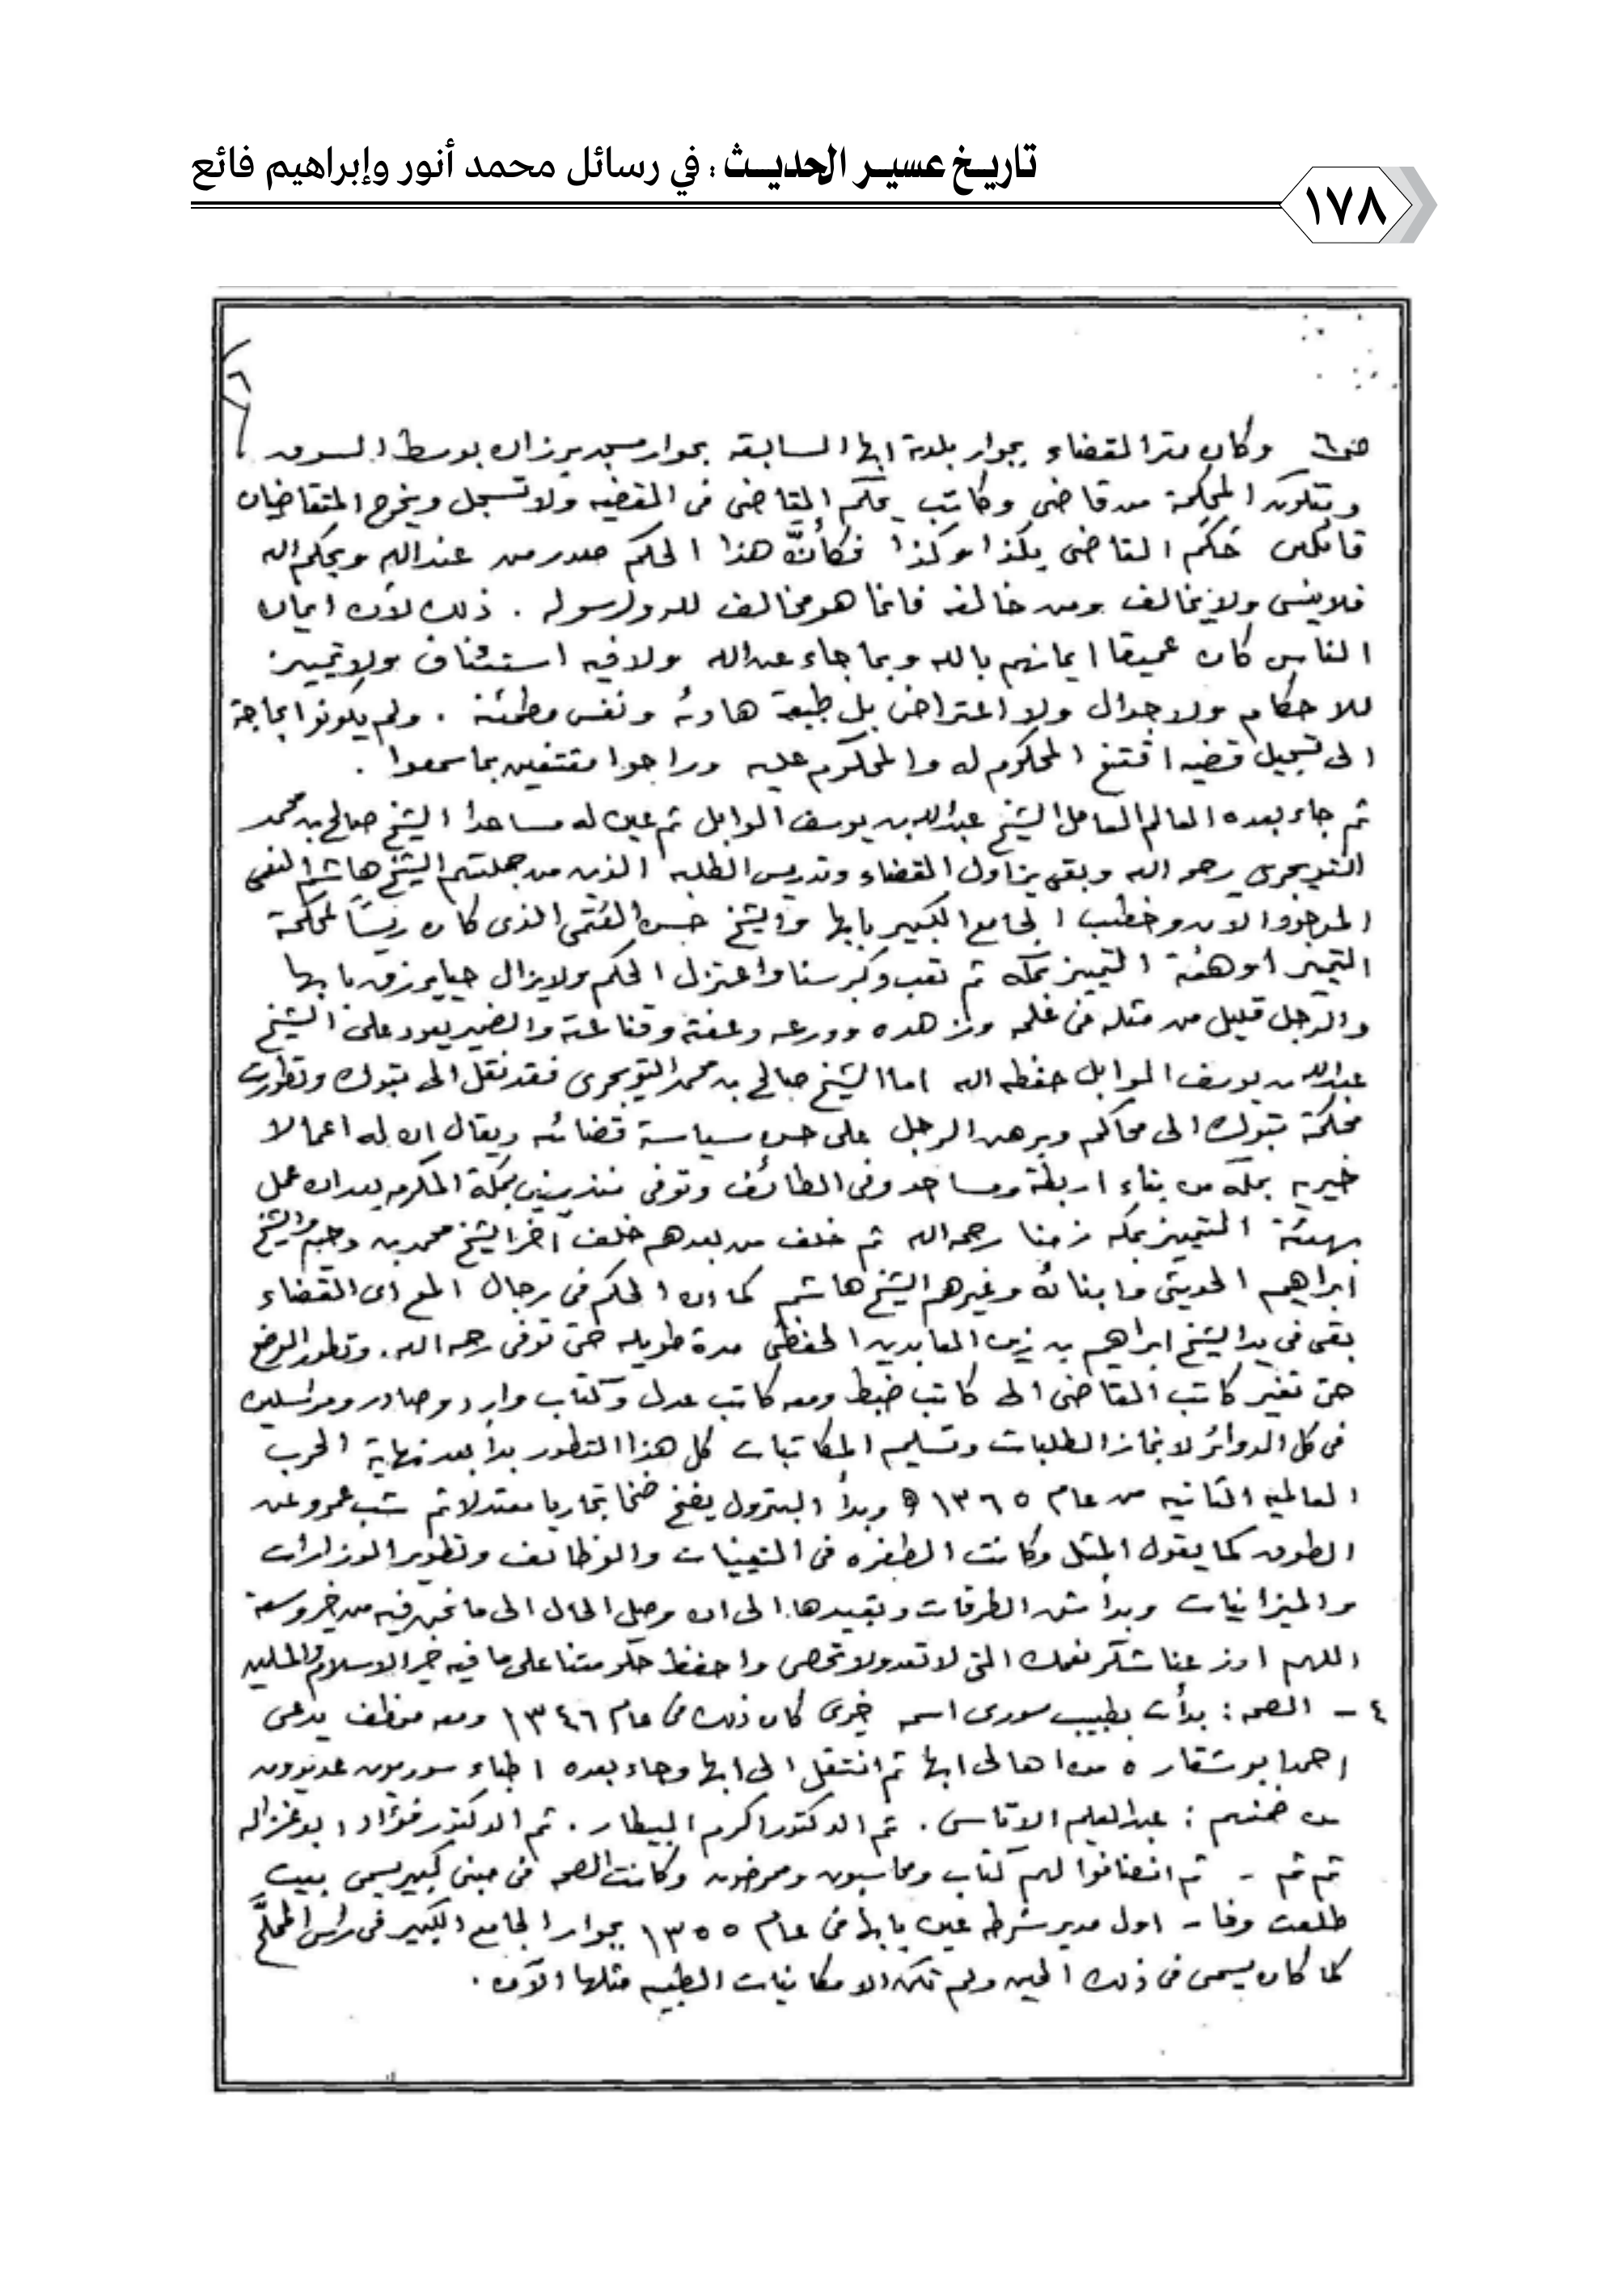 تاريخ عسير الحديث : في رسائل محمد أنور وإبراهيم فائع
١٧٨
٦
وكان مقر القضاء بجوار بلدية ابها السابقه بجوار مسجد برزان بوسط السوق
وتتكون المحكمة من قاضى وكاتب يحكم القاضى فى القضيه ولا تسجل ويخرج المتقاضيان
قائلين حَكَم القاضى بكذا وكذا فكأنَّ هذا الحكم صدر من عند الله وبحكم الله
فلا ينسى ولا يخالف ومن خالفه فانما هو مخالف لله ولرسوله . ذلك لأن ايمان
الناس كان عميقا ايمانهم بالله وبما جاء عن الله ولا فيه استئناف ولا تمييز
للاحكام ولا جدال ولا اعتراض بل طبيعة هادئه ونفس مطمئنه . ولم يكونوا بحاجة
الى تسجيل قضيه اقتنع المحكوم له والمحكوم عليه وراحوا مقتنعين بما سمعوا .
ثم جاء بعده العالم العامل الشيخ عبدالله بن يوسف الوابل ثم عين له مساعدا الشيخ صالح بن محمد
التويجرى رحمه الله وبقى يزاول القضاء وتدريس الطلبه الذين من جملتهم الشيخ هاشم النعمى
الموجود الان وخطيب الجامع الكبير بابها والشيخ حسن العتمى الذى كان رئيسًا لمحكمة
التمييز او هئية التمييز بمكه ثم تعب وكبر سنا واعتزل الحكم ولا يزال حيا يرزق بابها
والرجل قليل من مثله فى علمه وزهده وورعه وعفته وقناعته والضمير يعود على الشيخ
عبدالله بن يوسف الوابل حفظه الله اما الشيخ صالح بن محمد التويجرى فقد نقل الى تبوك وتطورت
محكمة تبوك الى محاكم وبرهن الرجل على حسن سياسة قضائه ويقال ان له اعمالا
خيريه بمكه من بناء اربطة ومساجد وفى الطائف وتوفى منذ سنين بمكة المكرمه بعد ان عمل
بهيئة التمييز بمكه زمنا رحمه الله ثم خلف من بعدهم خلف آخر الشيخ محمد بن والشيخ
ابراهيم الحديثى وابنائه وغيرهم الشيخ هاشم كما ان الحكم فى رجال المع اى القضاء
بقى فى يد الشيخ ابراهيم بن زين العابدين الحفظى مدة طويله حتى توفى رحمه الله. وتطور الوضع
حتى تغير كاتب القاضى الى كاتب ضبط ومعه كاتب عدل وكتاب وارد وصادر ومراسلين
فى كل الدوائر لانجاز الطلبات وتسليم المكاتبات كل هذا التطور بدأ بعد نهاية الحرب
العالميه الثانيه من عام ١٣٦٥ ه وبدأ البترول يضخ ضخا تجاريا معتدلا ثم شب عمرو عن
الطوق كما يقول المثل وكانت الطفره فى التعيينات والوظائف وتطوير الوزارات
والميزانيات وبدأ شق الطرقات وتعبيدها الى ان وصل الحال الى ما نحن فيه من خير وسعة
اللهم اوزعنا شكر نعمك التى لا تعد ولا تحصى واحفظ حكومتنا على ما فيه خير الاسلام والمسلمين
٤ – الصحه : بدأت بطبيب سورى اسمه خيرى كان ذلك فى عام ١٣٤٦ ومعه موظف يدعى
احمد ابو شقاره من اهالى ابها ثم انتقل الى ابها وجاء بعده اطباء سوريون عديدون
من ضمنهم : عبدالعليم الاتاسى . ثم الدكتور اكرم البيطار . ثم الدكتور فؤاد ابو غزاله
ثم ثم - ثم انضافوا لهم كتاب ومحاسبون وممرضون وكانت الصحه فى مبنى كبير يسمى ببيت
طلعت وفا - اول مدير شرطه عين بابها فى عام ١٣٥٥ بجوار الجامع الكبير فى راس المملَّح
كما كان يسمى فى ذلك الحين ولم تكن الامكانيات الطبيه مثلها الآن .